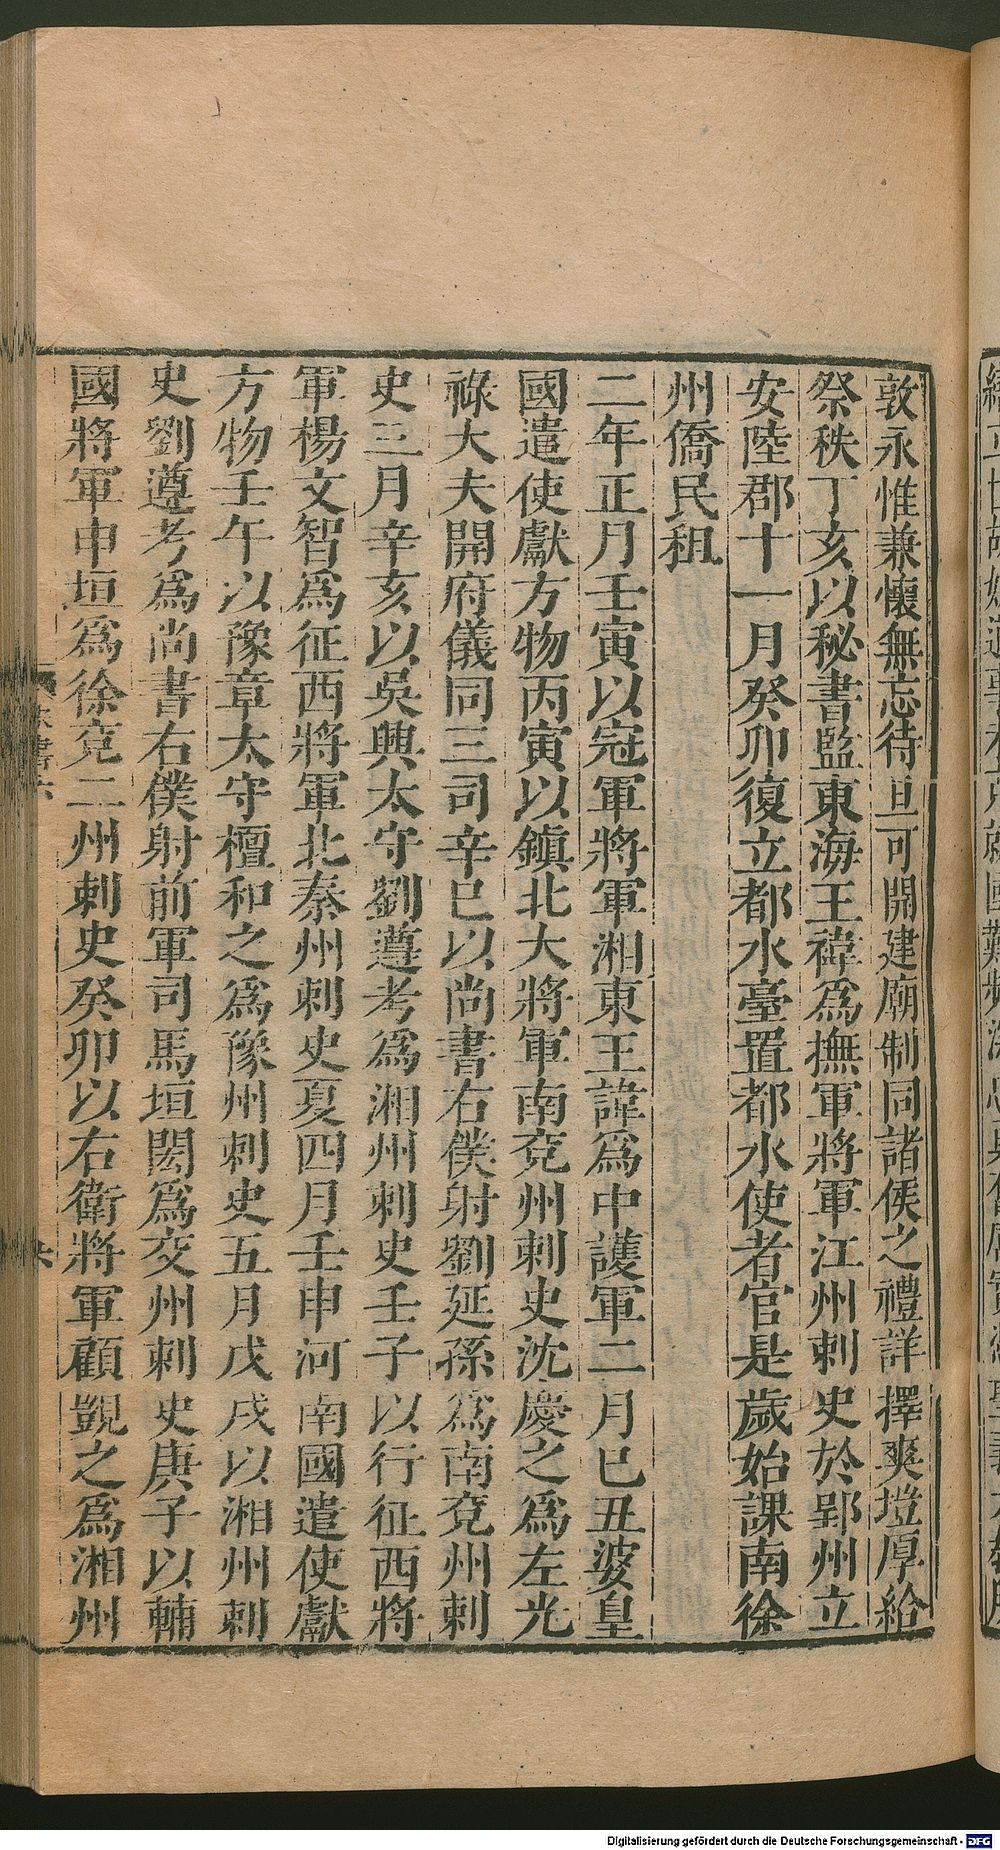 敦永惟兼懷無忘待旦可開建廟制同諸侯之禮詳擇爽塏厚給
祭秩丁亥以秘書監東海王禕爲撫軍將軍江州刺史於郢州立
安陸郡十一月癸卯復立都水臺置都水使者官是歲始課南徐
州僑民租
二年正月壬寅以冠軍將軍湘東王諱爲中護軍二月巳丑婆皇
國遣使獻方物丙寅以鎭北大將軍南兖州刺史沈慶之爲左光
祿大夫開府儀同三司辛巳以尚書右僕射劉延孫爲南兖州刺
史三月辛亥以吳興太守劉遵考爲湘州刺史壬子以行征西將
軍楊文智爲征西將軍北秦州刺史夏四月壬申河南國遣使獻
方物壬午以豫章太守檀和之爲豫州刺史五月戊戌以湘州刺
史劉遵考爲尚書右僕射前軍司馬垣閎爲交州刺史庚子以輔
國將軍申垣爲徐兖二州刺史癸卯以右衛將軍顧覬之爲湘州
Digitalisierung gefördert durch die Deutsche Forschungsgemeinschaft - DFG